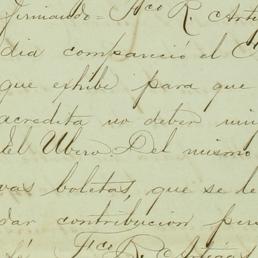 firmando = Fco R. Arti
dia compareció el
que exhibe para que
acredita no deber nin
del Ubero. Del mismo
vas boletas, que se le
dar contribucion per
Fco R. Artigas